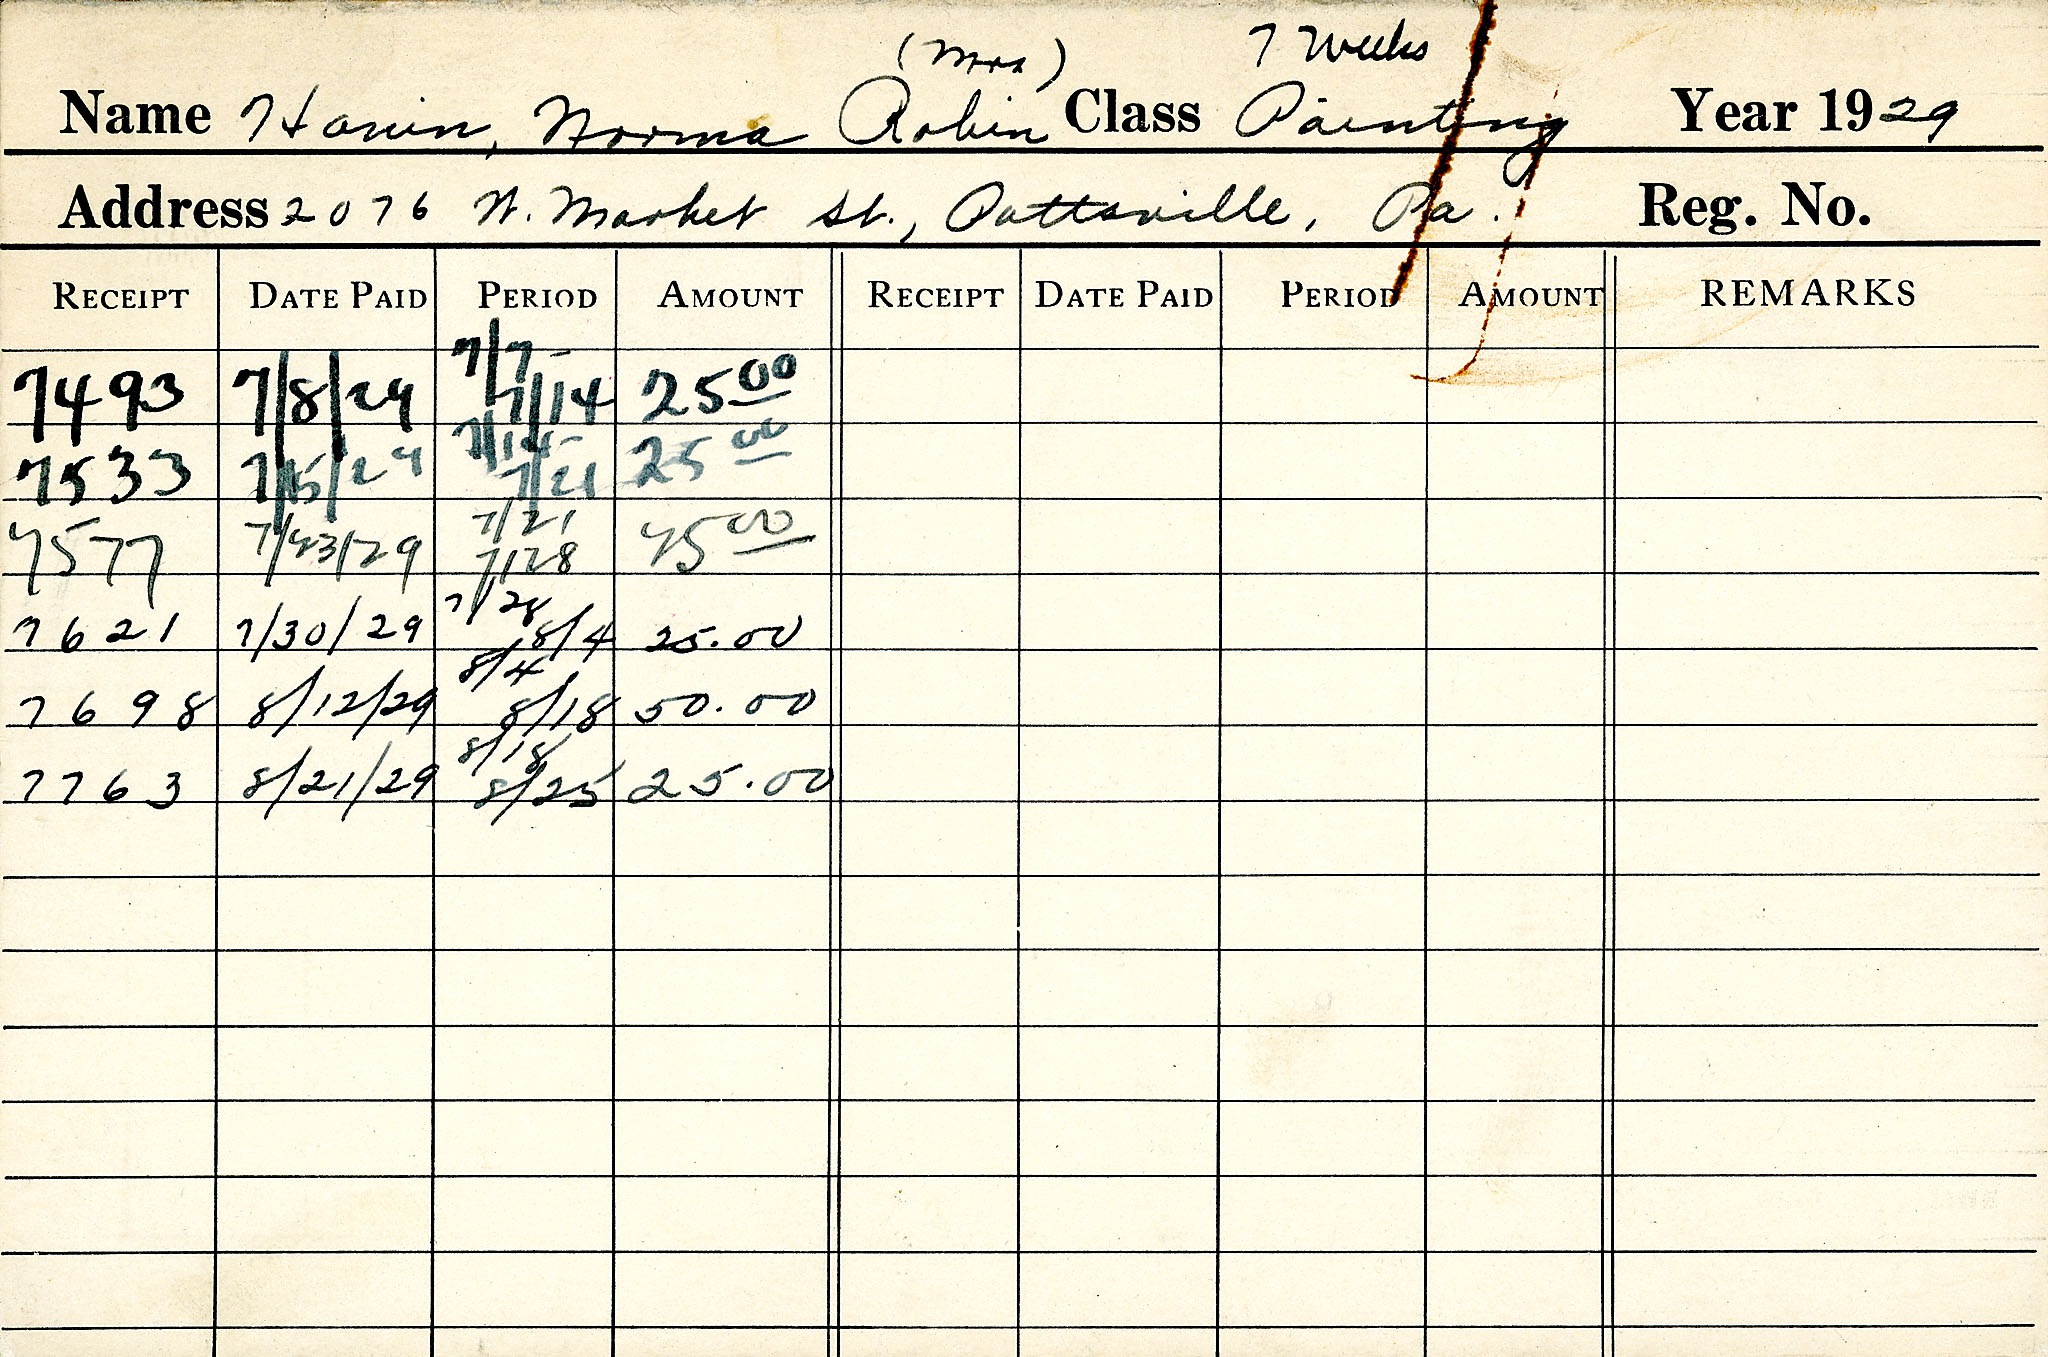 (Mrs) 7 Weeks
Name Hanin, Norma Robin Class Painting Year 1929
Address 2076 W. Market St., Pottsville, Pa. Reg. No.
RECEIPT DATE PAID PERIOD AMOUNT RECEIPT DATE PAID PERIOD AMOUNT REMARKS
7/7-
7493 7/8/29 7/14 25 00
7/14-
7533 7/15/29 7/21 25 00
7/21
7577 7/23/29 7/28 25 00
7/28
7621 7/30/29 8/4 25.00
8/4
7698 8/12/29 8/18 50.00
8/18
7763 8/21/29 8/25 25.00